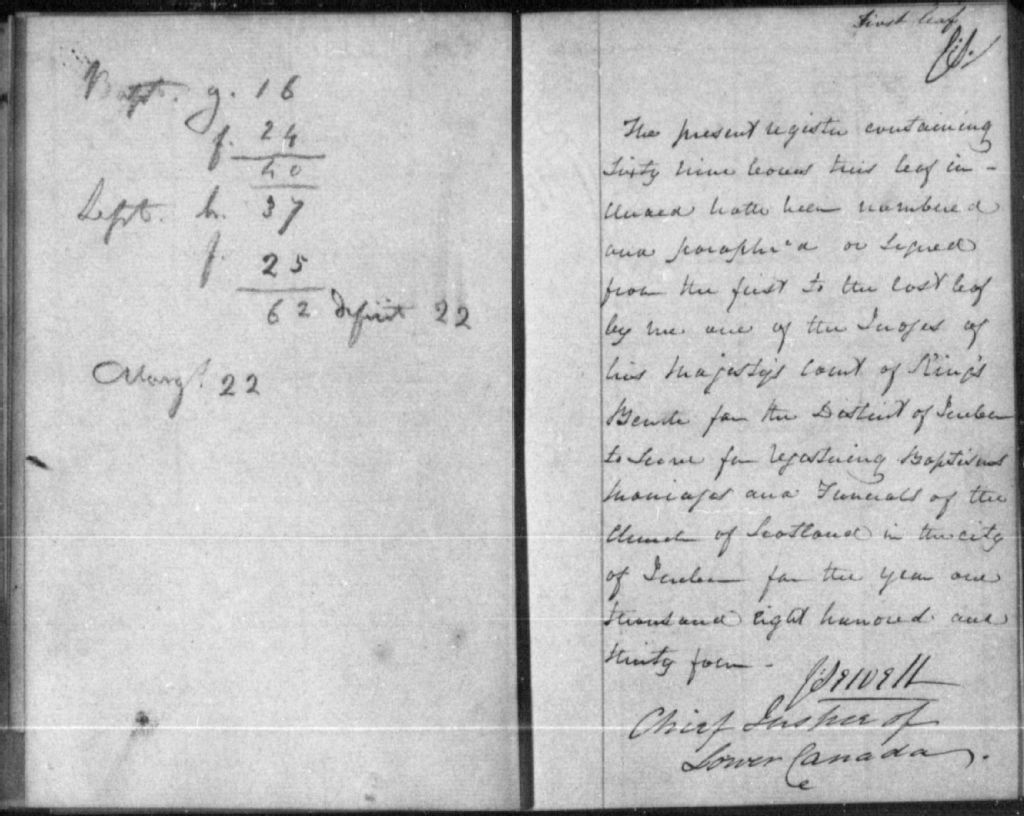 Bapt. g. 16
f. 24
40
Sept. h. 37
f. 25
62 deficit 22
Marg. 22
first leaf
J:S.
The present register containing
Sixty nine leaves this leaf in-
cluded hath been numbered
and paraph'd or signed
from the first to the last leaf
by me one of the Judges of
his Majestys Court of King's
Bench for the District of Quebec
to serve for registering Baptisms
Marriages and Funerals of the
Church of Scotland in the city
of Quebec for the year one
thousand eight hundred and
thirty four -
J:Sewell
Chief Justice of
Lower Canada.